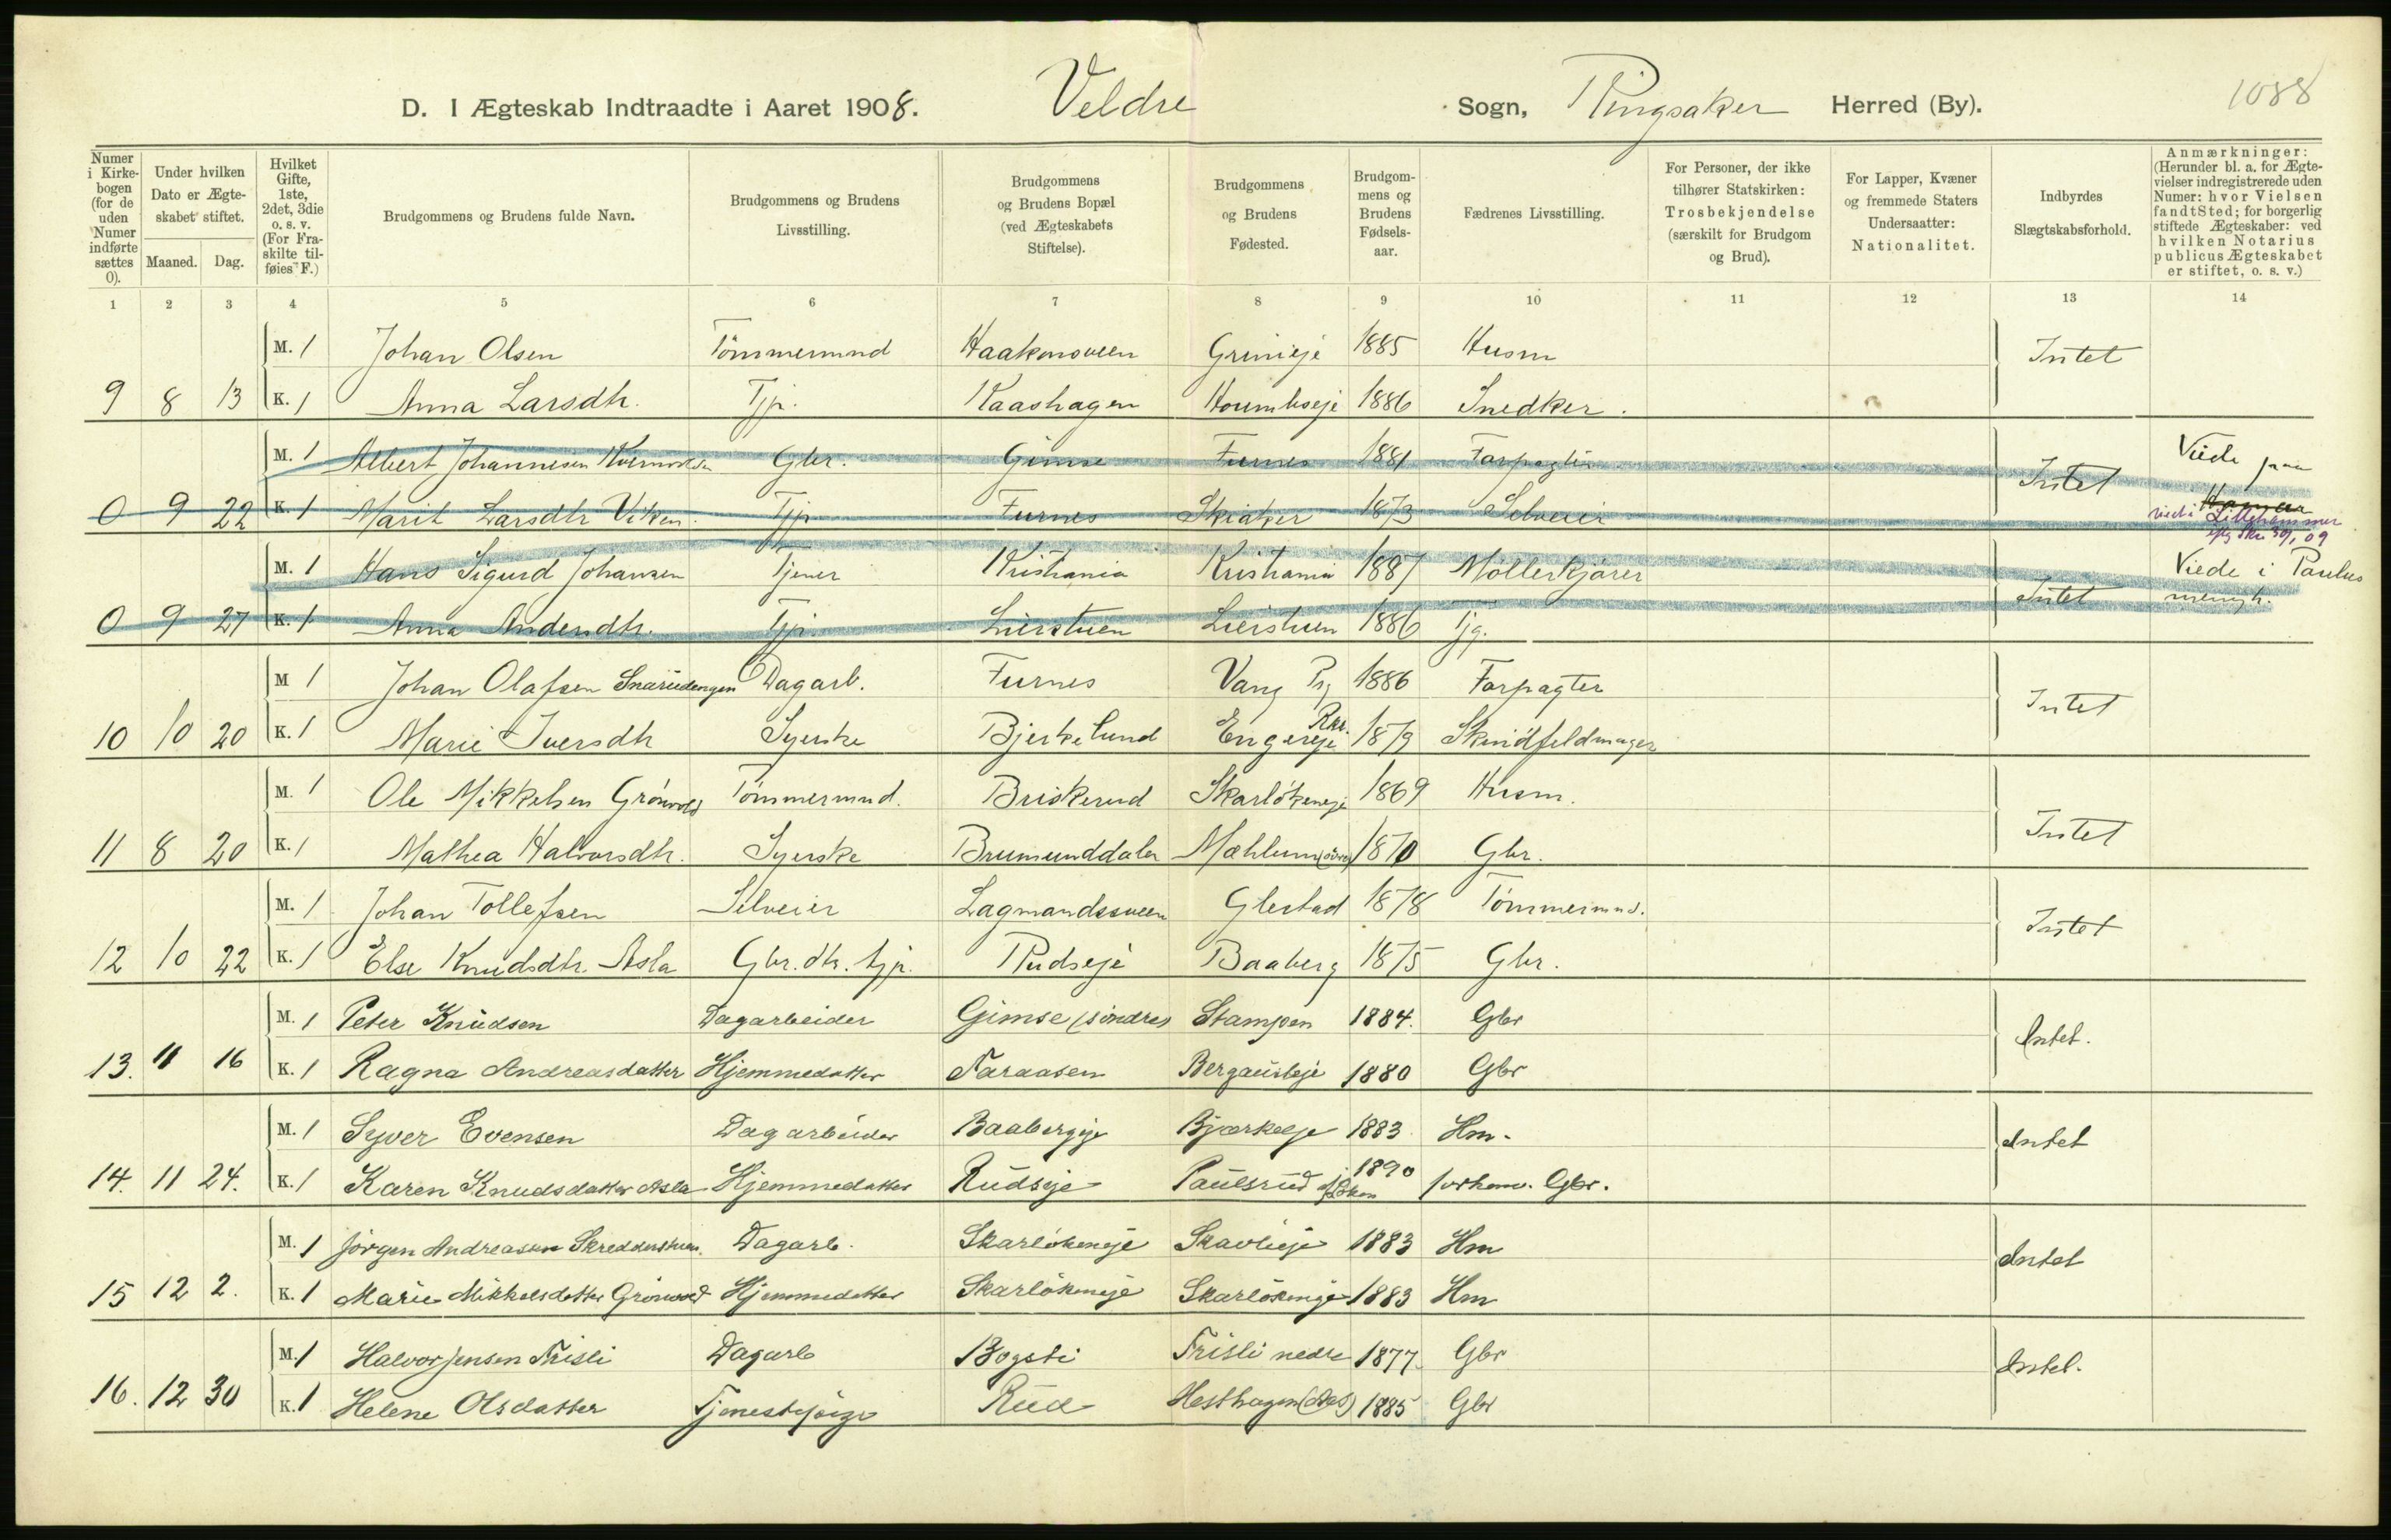 1088
D. I Ægteskab Indtraadte i Aaret 1908. Veldre Sogn, Ringsaker Herred (By).
Numer i Kirkebogen (for de uden Numer indførte sættes 0).
Under hvilken Dato er Ægteskabet stiftet.
Maaned. Dag.
Hvilket Gifte, 1ste, 2det, 3die o. s. v. (For Fraskilte tilføies F.)
Brudgommens og Brudens fulde Navn.
Brudgommens og Brudens Livsstilling.
Brudgommens og Brudens Bopæl (ved Ægteskabets Stiftelse).
Brudgommens og Brudens Fødested.
Brudgommens og Brudens Fødselsaar.
Fædrenes Livsstilling.
For Personer, der ikke tilhører Statskirken: Trosbekjendelse (særskilt for Brudgom og Brud).
For Lapper, Kvæner og fremmede Staters Undersaatter: Nationalitet.
Indbyrdes Slægtskabsforhold.
Anmærkninger: (Herunder bl. a. for Ægtevielser indregistrerede uden Numer: hvor Vielsen fandt Sted; for borgerlig stiftede Ægteskaber: ved hvilken Notarius publicus Ægteskabet er stiftet, o. s. v.)
1 2 3 4 5 6 7 8 9 10 11 12 13 14
M. 1 Johan Olsen Tömmermnd Haakonsveen Grinieje 1885 Husm Intet
9 8 13 K. 1 Anna Larsdtr. Tjp. Kaashagen 1886 Snedker.
M. 1 Albert Johannesen Gbr. Gimse Furnes 1881 Forpagter Intet Viede paa
0 9 22 K. 1 Marit Larsdtr Viken. Tjp Furnes Skiaker 1873 Selveier Hamar
viet i Lillehammer
M. 1 Hans Sigurd Johansen Tjener Kristiania Kristiania 1887 Möllerkjörer Intet Viede i Paulus
0 9 27 K. 1 Anna Andersdtr. Tjp. Lierstuen Lierstuen 1886 Tjg. menigh.
M 1 Johan Olafsen Snarudengen Dagarb. Furnes Vang Pg 1886 Forpagter Intet
10 10 20 K. 1 Marie Iversdtr Syerske Bjerkelund Engereje 1879 Skindfeldmager
M. 1 Ole Mikkelsen Grönvold Tömmermnd. Briskerud Skarlökeneje 1869 Husm. Intet
11 8 20 K. 1 Mathea Halvorsdtr. Syerske Brumunddalen Mæhlum (övre) 1870 Gbr.
M. 1 Johan Tollefsen Selveier Lagmandssveen Glestad 1878 Tömmermnd. Intet
12 10 22 K. 1 Else Knudsdtr. Asla Gbr. dtr. tjp. Rudseje Baaberg 1875 Gbr.
M. 1 Peter Knudsen Dagarbeider Gimse (söndre) Stampen 1884. Gbr Intet.
13. 11 16 K. 1 Ragna Andreasdatter Hjemmedatter Faraasen Bergauseje 1880 Gbr
M. 1 Syver Evensen Dagarbeider Baabergeje Bjørkeeje 1883 Hm. Intet
14. 11 24. K. 1 Karen Knudsdatter Asla Hjemmedatter Rudseje Paulsrud 1890 forhenv. Gbr.
M. 1 Jörgen Andreassen Skredderstuen. Dagarb. Skarlökeneje Skavlieje 1883 Hm Intet
15 12 2. K. 1 Marie Mikkelsdatter Grönvold Hjemmedatter Skarlökeneje Skarlökeneje 1883 Hm
M. 1 Halvor Jensen Frisli Dagarb Bogsti Frisli nedre 1877. Gbr Intet.
16. 12 30 K. 1 Helene Olsdatter Tjenestepige Rud Hesthagen 1885 Gbr